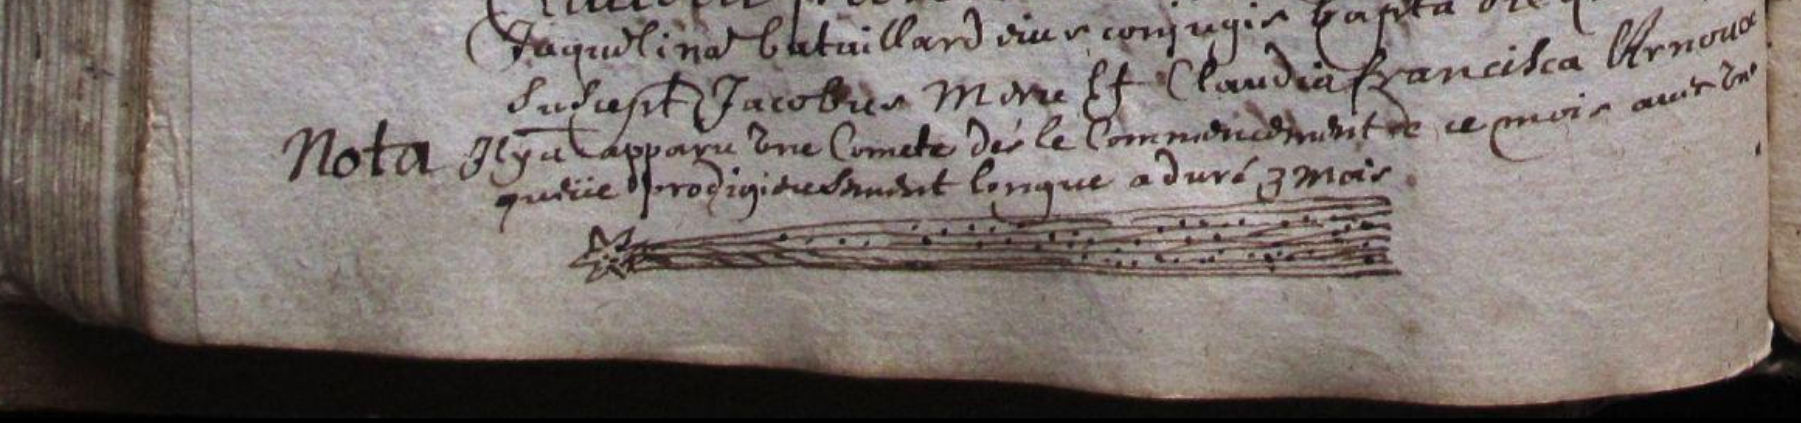 Jaquelina bataillard eius conjugis bapta
Suscept Jacobus Meru Et Claudia francisca Arnoux
Nota Il y a apparu une Comete dés le Commencement de ce mois avec une
queüe prodigieusement longue a duré 3 mois